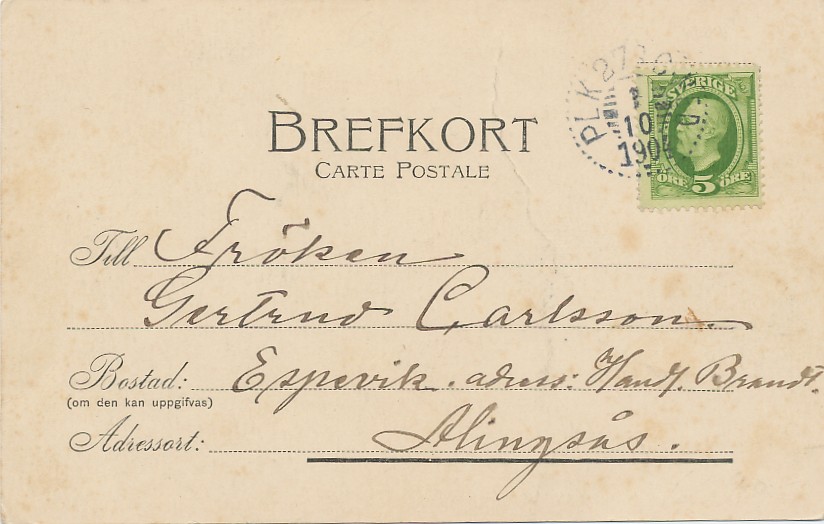 PLK 27
10
190
SVERIGE
ÖRE 5 ÖRE
BREFKORT
CARTE POSTALE
Till Fröken
Gertrud Carlsson
Bostad: Espevik. adress: Handl. Brandt.
(om den kan uppgifvas)
Adressort: Alingsås.